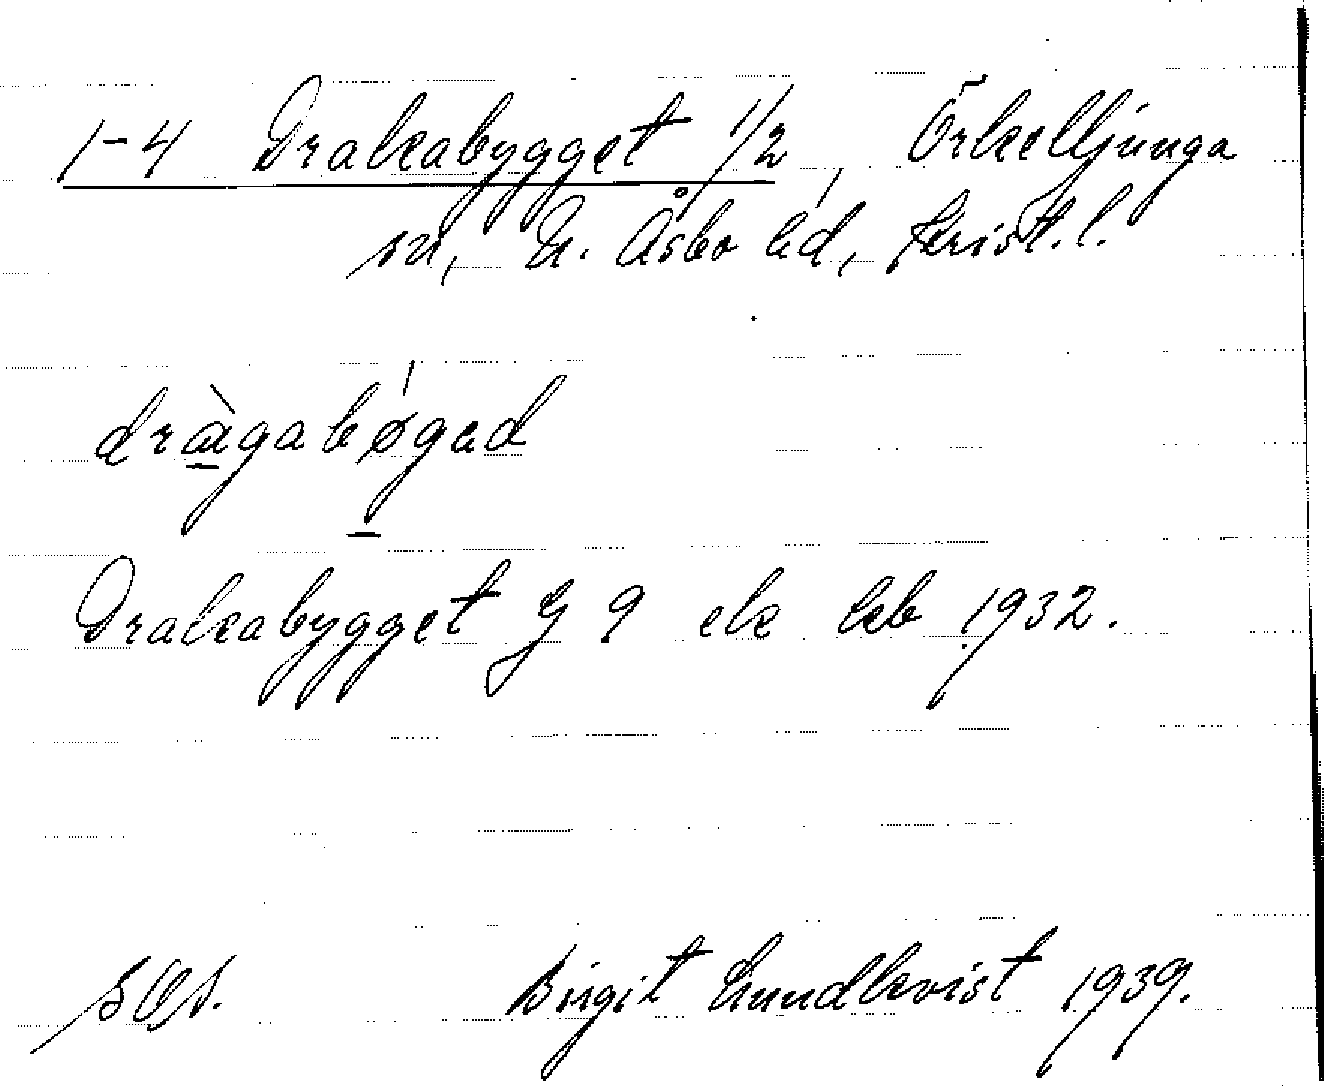 1-4 Drakabygget 1/2, Örkelljunga
sn, N. Åsbo hd, Krist. l.
dràgabøgad
Drakabygget G 9 ek kb 1932.
Birgit Lundkvist 1939.